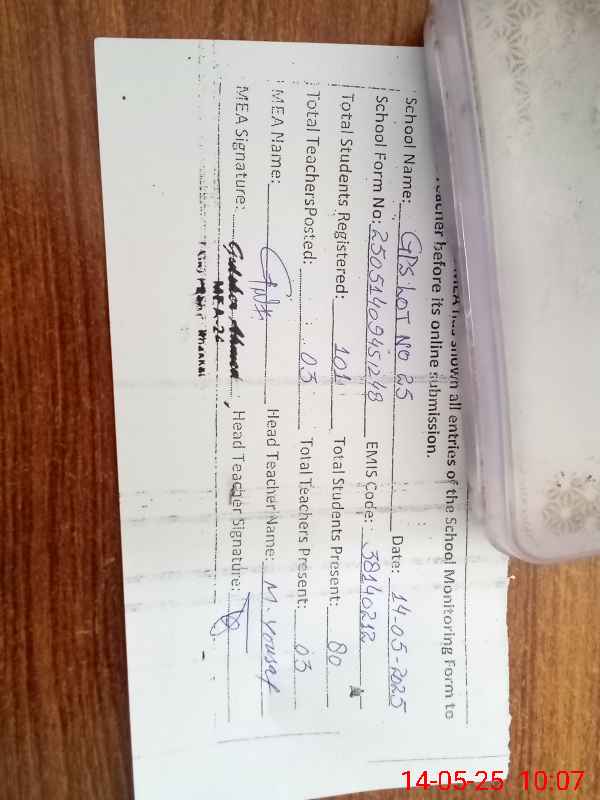 MEA has shown all entries of the School Monitoring Form to
Teacher before its online submission.
School Name: GPS LOT NO 25 Date: 14-05-2025
School Form No: 25051409451248 EMIS Code: 38140212
Total Students Registered: 101 Total Students Present: 80
Total TeachersPosted: 03 Total Teachers Present: 03
MEA Name: Head Teacher Name: M. Yousaf
MEA Signature: Ahmed Head Teacher Signature:
MEA-26
14-05-25 10:07